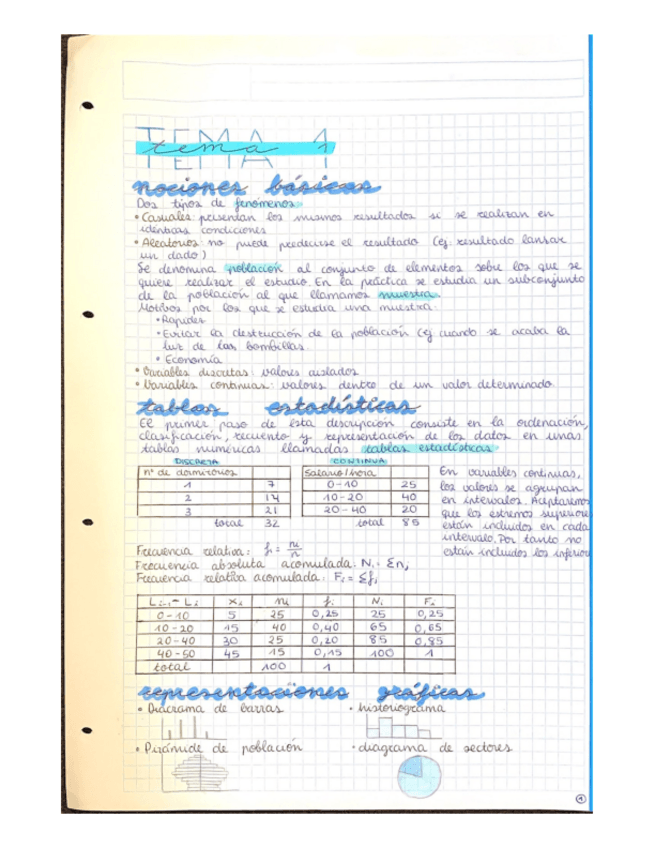 TEMA 1
tema 1
nociones básicas
Dos tipos de fenómenos
• Casuales: presentan los mismos resultados si se realizan en
idénticas condiciones
• Aleatorios: no puede predecirse el resultado (ej. resultado lanzar
un dado)
Se denomina población al conjunto de elementos sobre los que se
quiere realizar el estudio. En la práctica se estudia un subconjunto
de la población al que llamamos muestra.
Motivos por los que se estudia una muestra:
• Rapidez
• Evitar la destrucción de la población (ej cuando se acaba la
luz de las bombillas
• Economía
• Variables discretas: valores aislados
• Variables continuas: valores dentro de un valor determinado
tablas estadísticas
El primer paso de esta descripción consiste en la ordenación,
clasificación, recuento y representación de los datos en unas
tablas numéricas llamadas tablas estadísticas
DISCRETA
nº de dormitorios
1 7
2 14
3 21
total 32
CONTINUA
Salario/hora
0-10 25
10-20 40
20-40 20
total 85
En variables continuas,
los valores se agrupan
en intervalos. Aceptaremos
que los extremos superiore
están incluidos en cada
intervalo. Por tanto no
están incluidos los inferior
Frecuencia relativa: fi = ni/n
Frecuencia absoluta acomulada: Ni = Σni
Frecuencia relativa acomulada: Fi = Σfi
Li-1 - Li xi ni fi Ni Fi
0-10 5 25 0,25 25 0,25
10-20 15 40 0,40 65 0,65
20-40 30 25 0,20 85 0,85
40-50 45 15 0,15 100 1
total 100 1
representaciones gráficas
• Diacrama de barras
• historiograma
• Pirámide de población
• diagrama de sectores
1